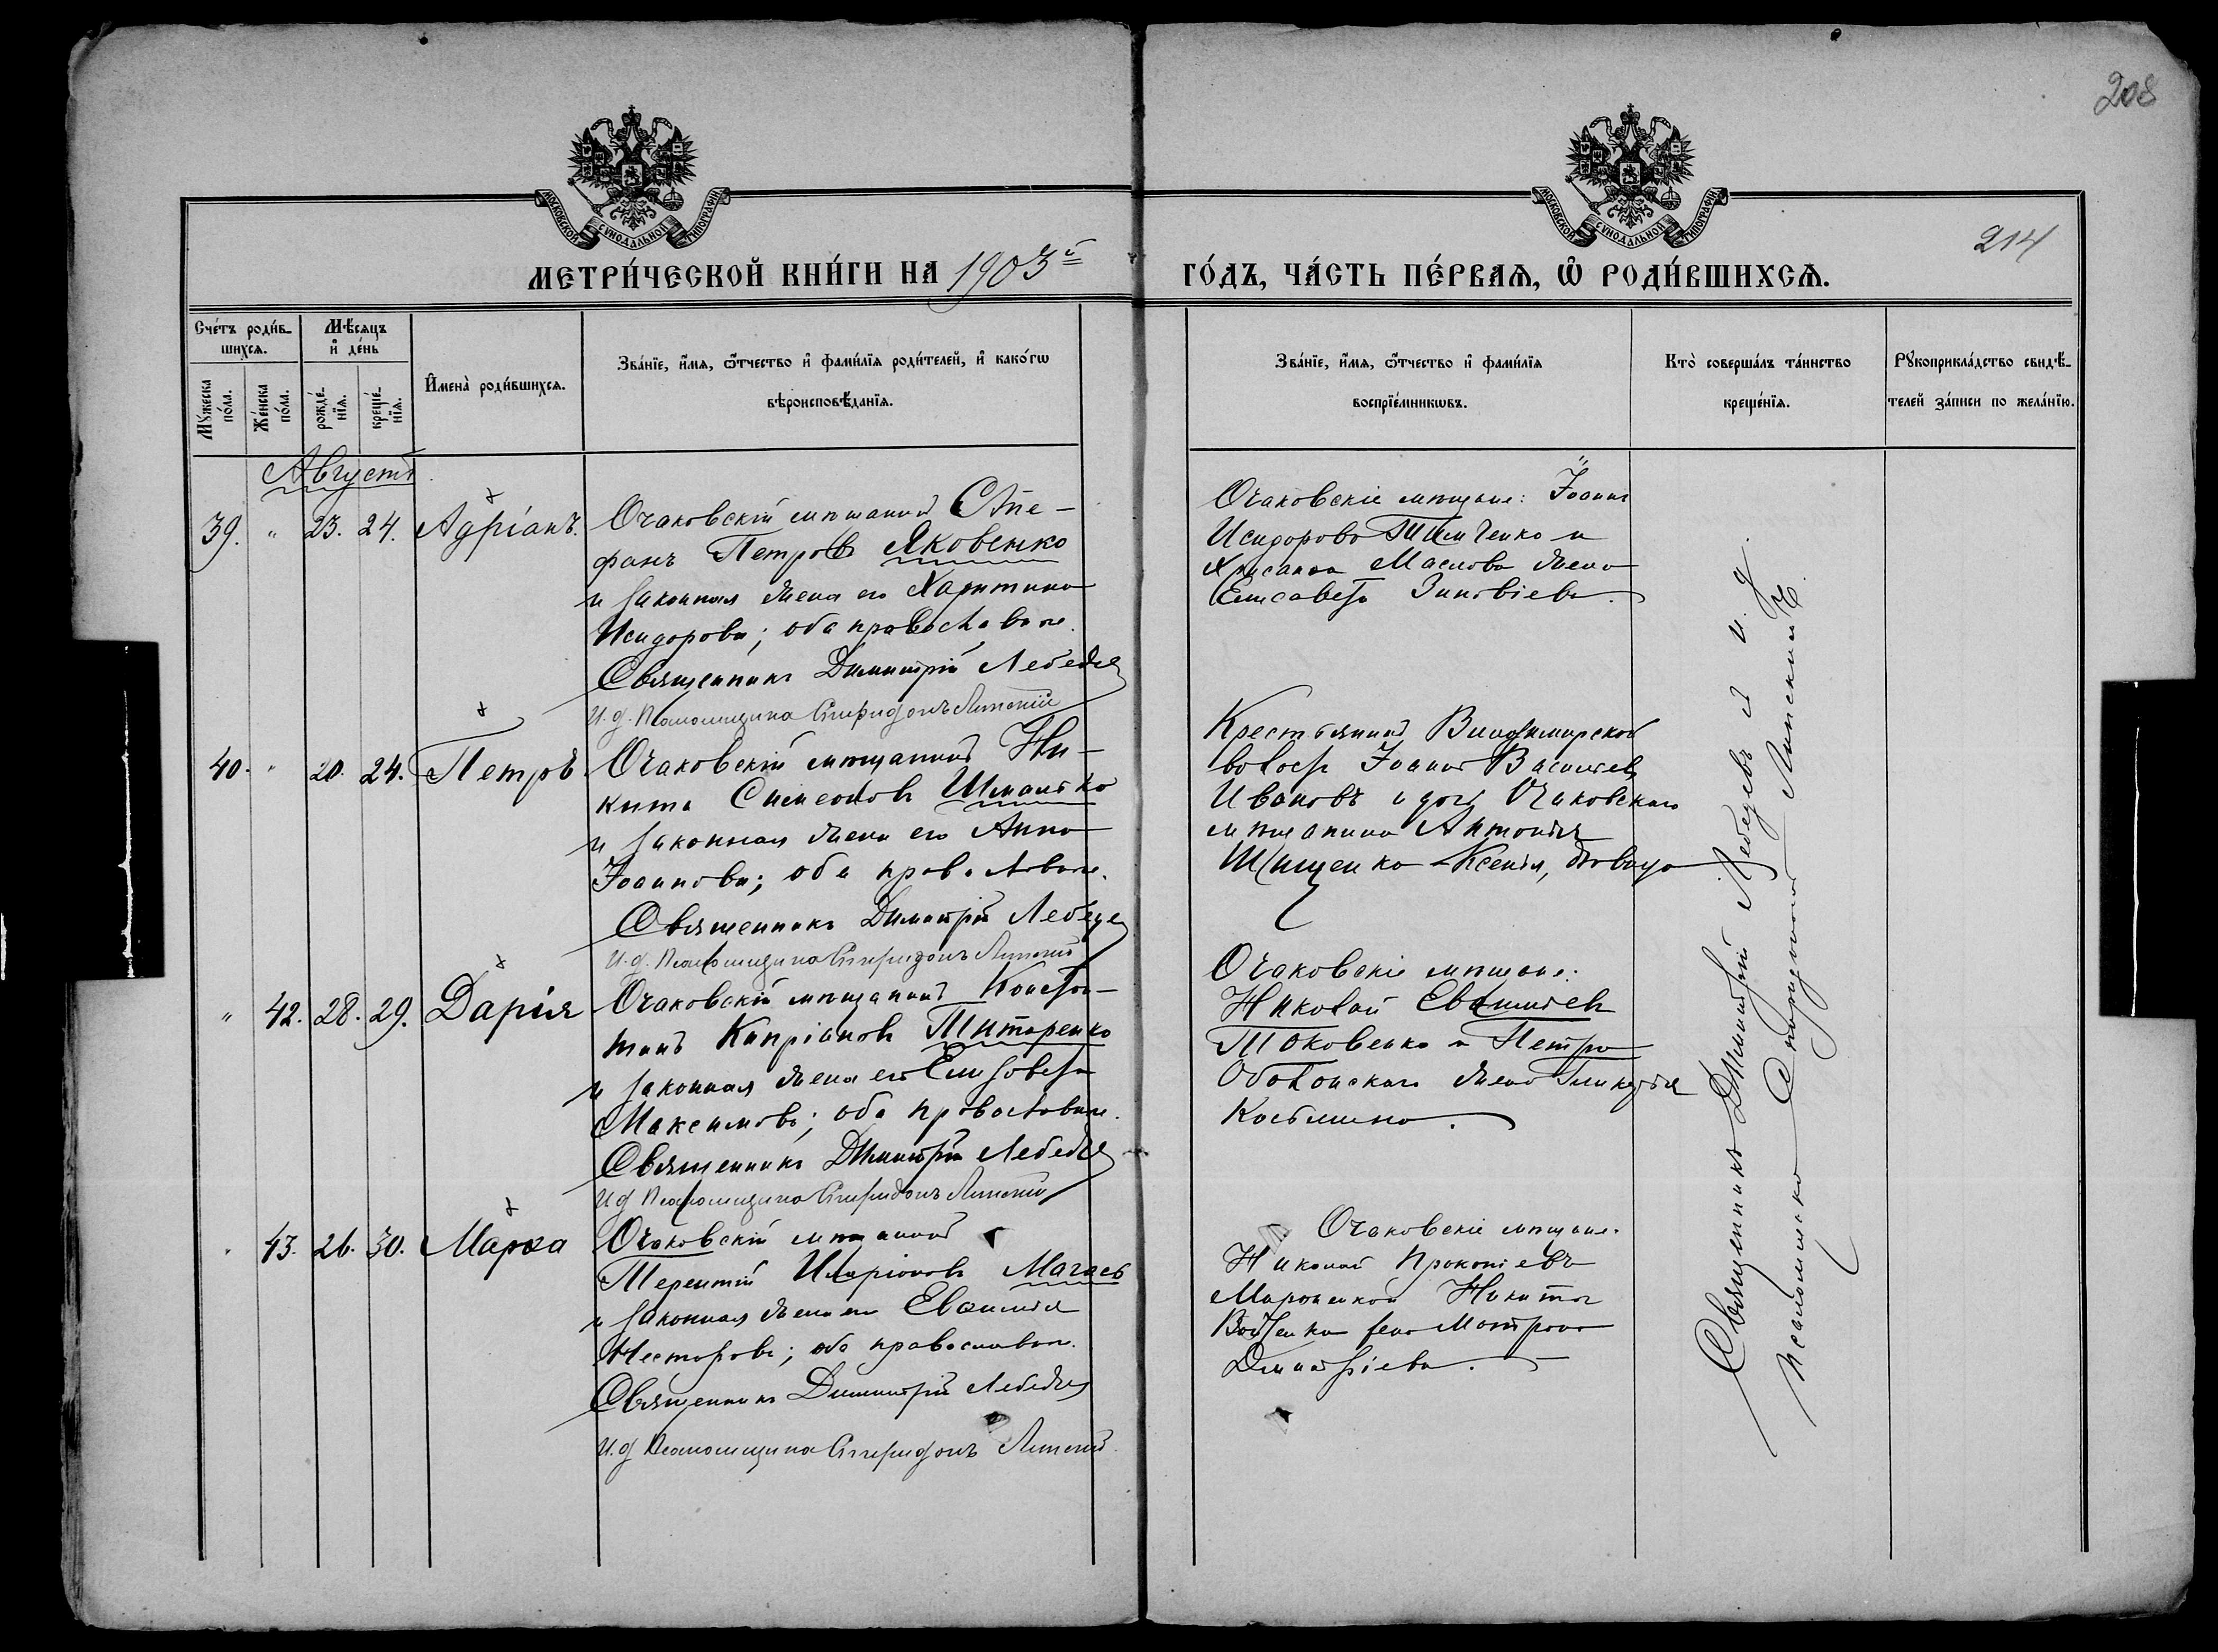 208
МОСКОВСКОЙ СѴНОДАЛЬНОЙ ТИПОГРАФІИ
МОСКОВСКОЙ СѴНОДАЛЬНОЙ ТИПОГРАФІИ
214
МЕТРИ́ЧЕСКОЙ КНИ́ГИ НА 1903й
ГО́ДЪ, ЧА́СТЬ ПЕ́РВАѦ, Ѡ҆ РОДИ́ВШИХСѦ.
Сче́тъ роди́в-
шихсѧ.
Мꙋ́жеска по́ла.
Же́нска по́ла.
Мѣ́сѧцъ
и҆ де́нь
рожде́-
нїѧ.
креще́-
нїѧ.
И҆мена̀ роди́вшихсѧ.
Зва́нїе, и҆́мѧ, ѻ҆́тчество и҆ фами́лїѧ роди́телей, и҆ како́гѡ
вѣроисповѣ́данїѧ.
Зва́нїе, и҆́мѧ, ѻ҆́тчество и҆ фами́лїѧ
воспрїе́мникѡвъ.
Кто̀ соверша́лъ та́инство
креще́нїѧ.
Рꙋкоприкла́дство свидѣ́-
телей за́писи по жела́нїю.
Августъ
39. " 23. 24. Адріанъ.
Очаковскій мѣщанинъ Сте-
фанъ Петровъ Яковенко
и законная жена его Харитина
Исидорова; оба православные.
Священникъ Димитрій Лебедевъ
И. д. Псаломщика Спиридонъ Липскій
Очаковскіе мѣщане: Іоаннъ
Исидоровъ Тимченко и
Хрисанфа Маслова жена
Елисавета Зиновіева.
40. " 20. 24. Петръ
Очаковскій мѣщанинъ Ни-
кита Симеоновъ Шманько
и законная жена его Анна
Іоаннова; оба православные.
Священникъ Димитрій Лебедевъ
И. д. Псаломщика Спиридонъ Липскій
Крестьянинъ Владимірской
волости Іоаннъ Васильевъ
Ивановъ и дочь Очаковскаго
мѣщанина Антонія
Ксенія, дѣвица
" 42. 28. 29. Дарія
Очаковскій мѣщанинъ Констан-
тинъ Кипріановъ Титаренко
и законная жена его Елизавета
Максимова; оба православные.
Священникъ Димитрій Лебедевъ
И д Псаломщика Спиридонъ Липскій
Очаковскіе мѣщане:
Николай
и Петра
жена Гликерія
" 43. 26. 30. Марѳа
Очаковскій мѣщанинъ
Терентій Иларіоновъ Магасъ
и законная жена его Евфимія
Несторова; оба православные.
Священникъ Димитрій Лебедевъ
И. д Псаломщика Спиридонъ Липскій.
Очаковскіе мѣщане:
Николай Прокопіевъ
Никиты
жена Матрона
Димитріева.
Священникъ Димитрій Лебедевъ и и. д.
псаломщика Спиридонъ Липскій.